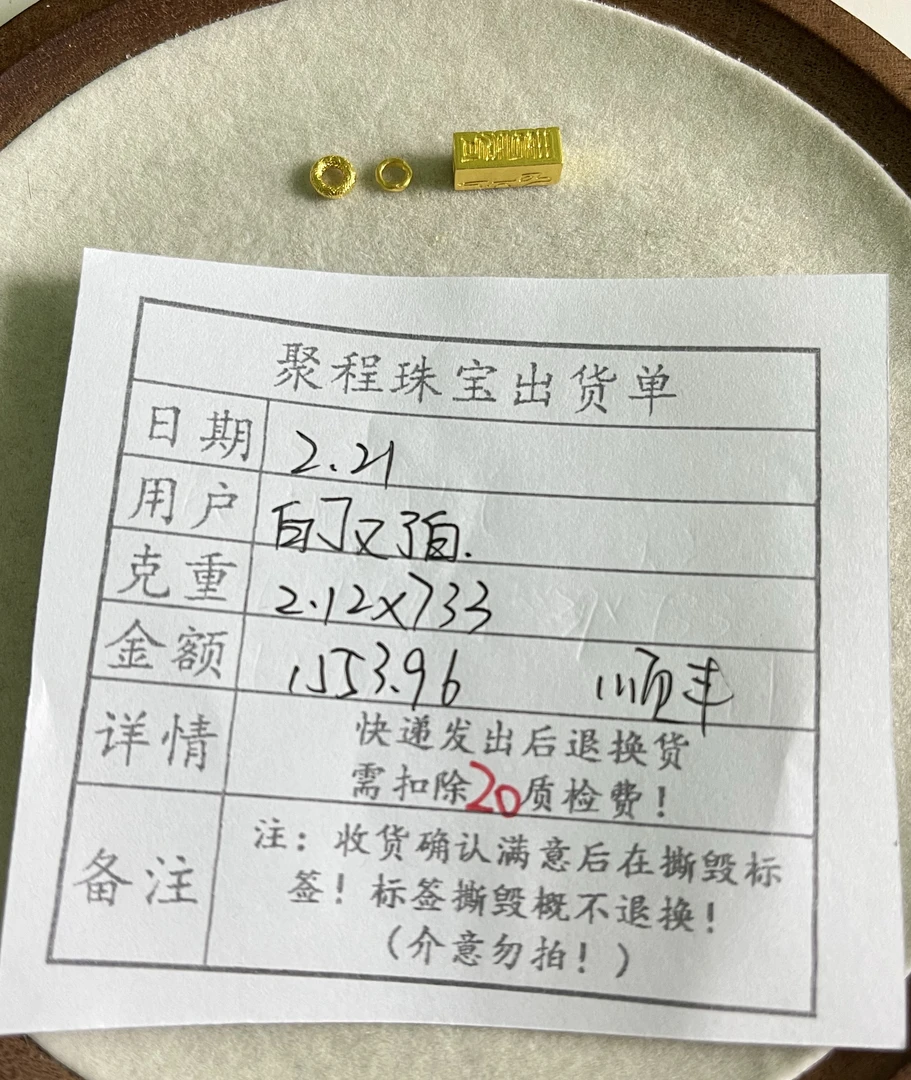 聚程珠宝出货单
日期 2.21
用户
克重 2.12×733
金额 1553.96 顺丰
详情 快递发出后退换货
需扣除20质检费！
备注 注：收货确认满意后在撕毁标
签！标签撕毁概不退换！
（介意勿拍！）